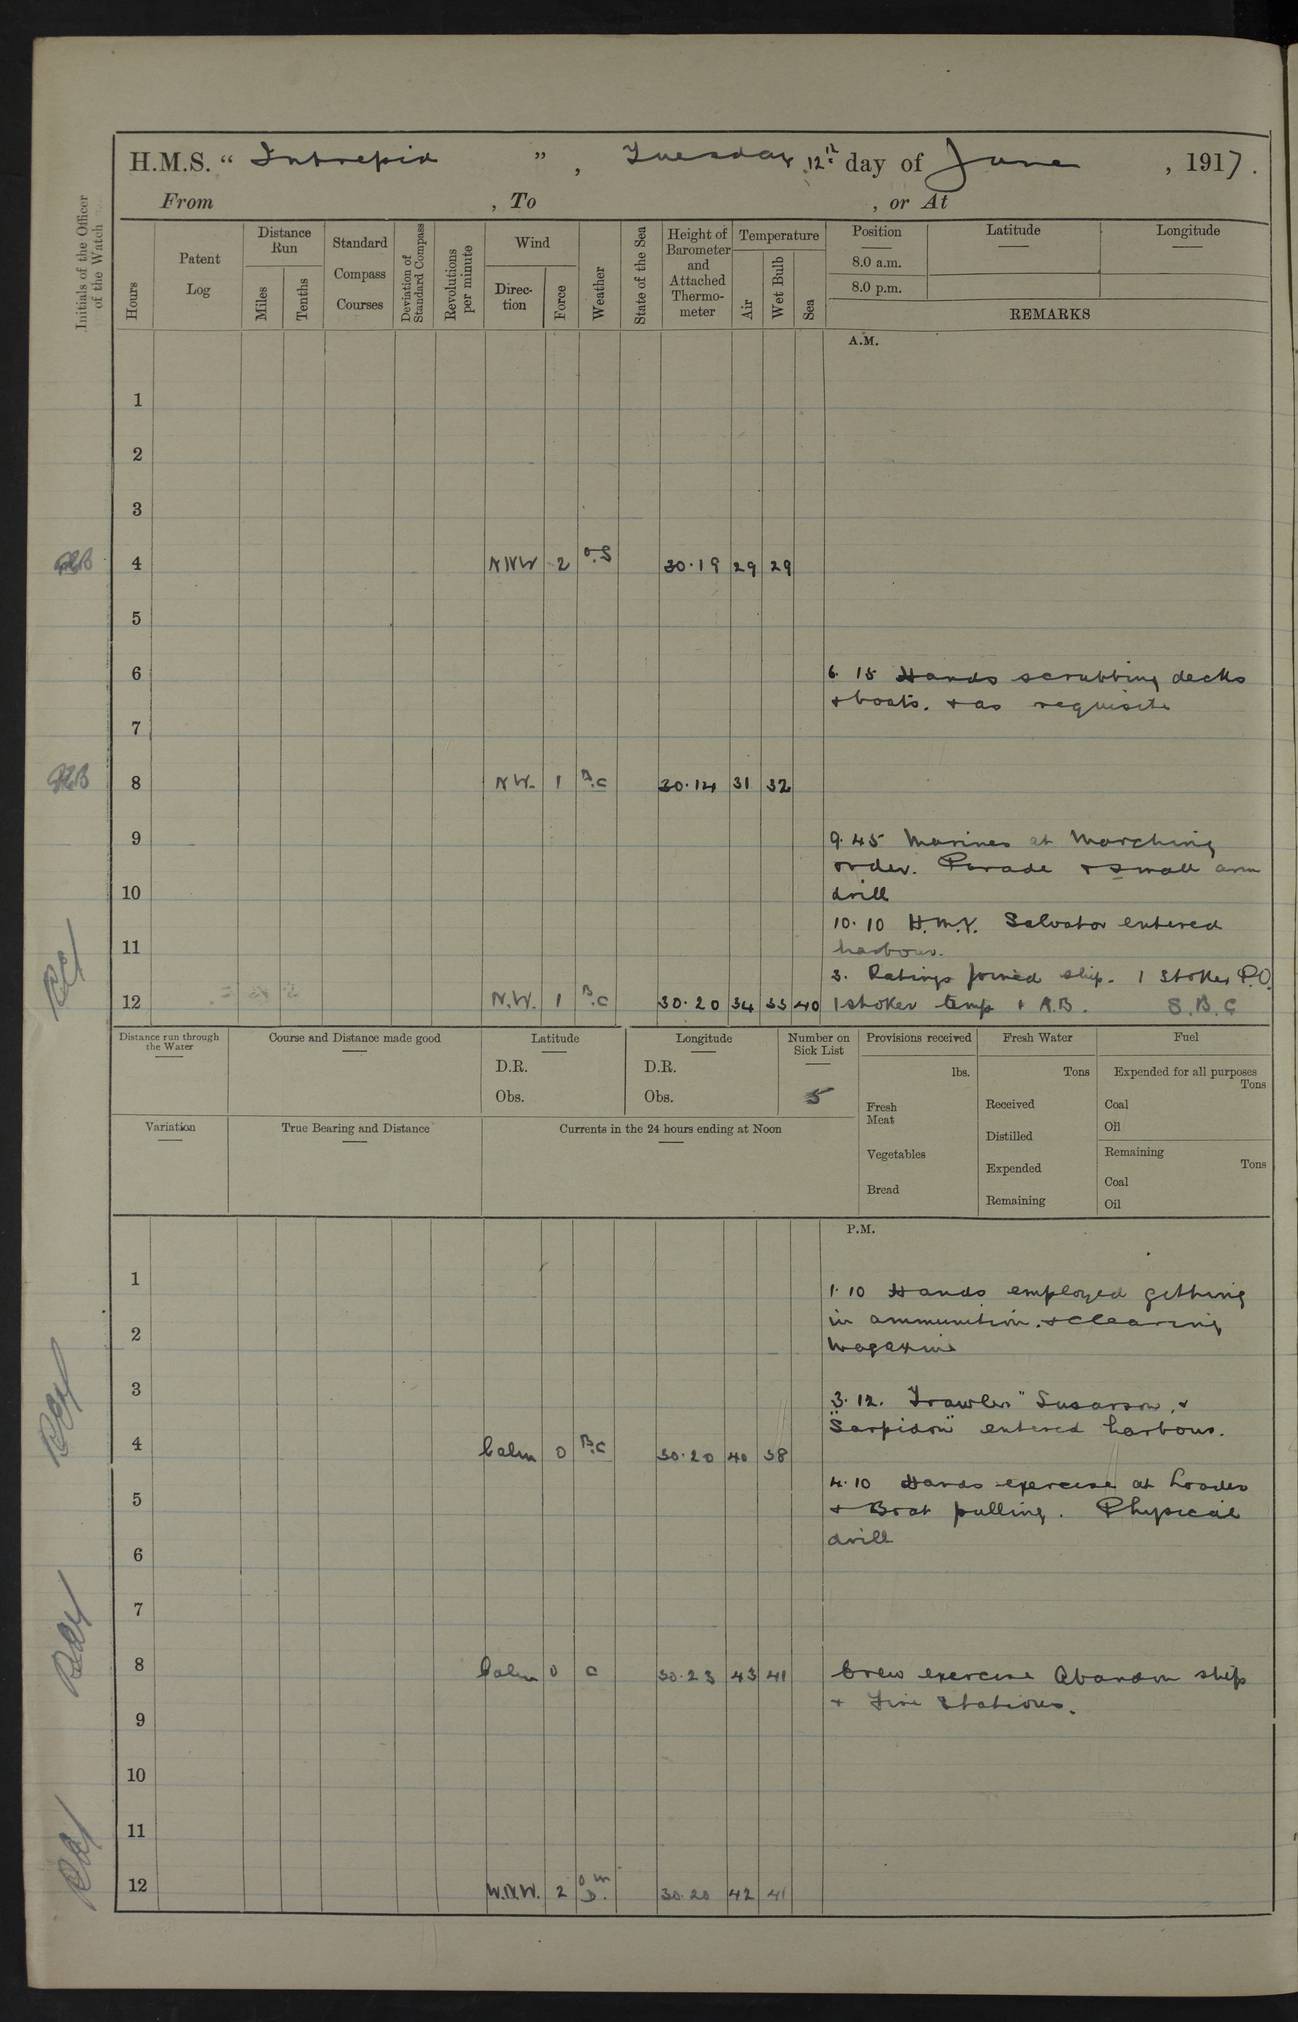 H.M.S. “ Intrepid ” , Tuesday 12th day of June , 1917.
From , To , or At
Initials of the Officer of the Watch
Hours
Patent Log
Distance Run
Miles
Tenths
Standard Compass Courses
Deviation of Standard Compass
Revolutions per minute
Wind
Direction
Force
Weather
State of the Sea
Height of Barometer and Attached Thermometer
Temperature
Air
Wet Bulb
Sea
Position
8.0 a.m.
8.0 p.m.
Latitude
Longitude
REMARKS
A.M.
1
2
3
4 NNW 2 o.S 30.19 29 29
5
6 6.15 Hands scrubbing decks
& boats. & as requisite
7
8 NW. 1 B.C 30.14 31 32
9 9.45 Marines at Marching
order. Parade & small arm
10 drill
10.10 H.M.Y. Salvator entered
11 harbour.
3. Ratings joined ship. 1 Stoker P.O.
12 N.W. 1 B.C 30.20 34 33 40 1 stoker temp & A.B. S.B.C
Distance run through the Water
Course and Distance made good
Latitude
D.R.
Obs.
Longitude
D.R.
Obs.
Number on Sick List
5
Provisions received
lbs.
Fresh Meat
Vegetables
Bread
Fresh Water
Tons
Received
Distilled
Expended
Remaining
Fuel
Expended for all purposes
Tons
Coal
Oil
Remaining
Tons
Coal
Oil
Variation
True Bearing and Distance
Currents in the 24 hours ending at Noon
P.M.
1 1.10 Hands employed getting
in ammunition. & clearing
2 Magazine
3 3.12. Trawlers "Susarion" &
"Sarpidon" entered harbour.
4 Calm 0 B.C 30.20 40 38
4.10 Hands exercise at Loader
5 & Boat pulling. Physical
drill
6
7
8 Calm 0 C 30.23 43 41 Crew exercise Abandon ship
& Fire Stations.
9
10
11
12 W.N.W. 2 o m D. 30.20 42 41